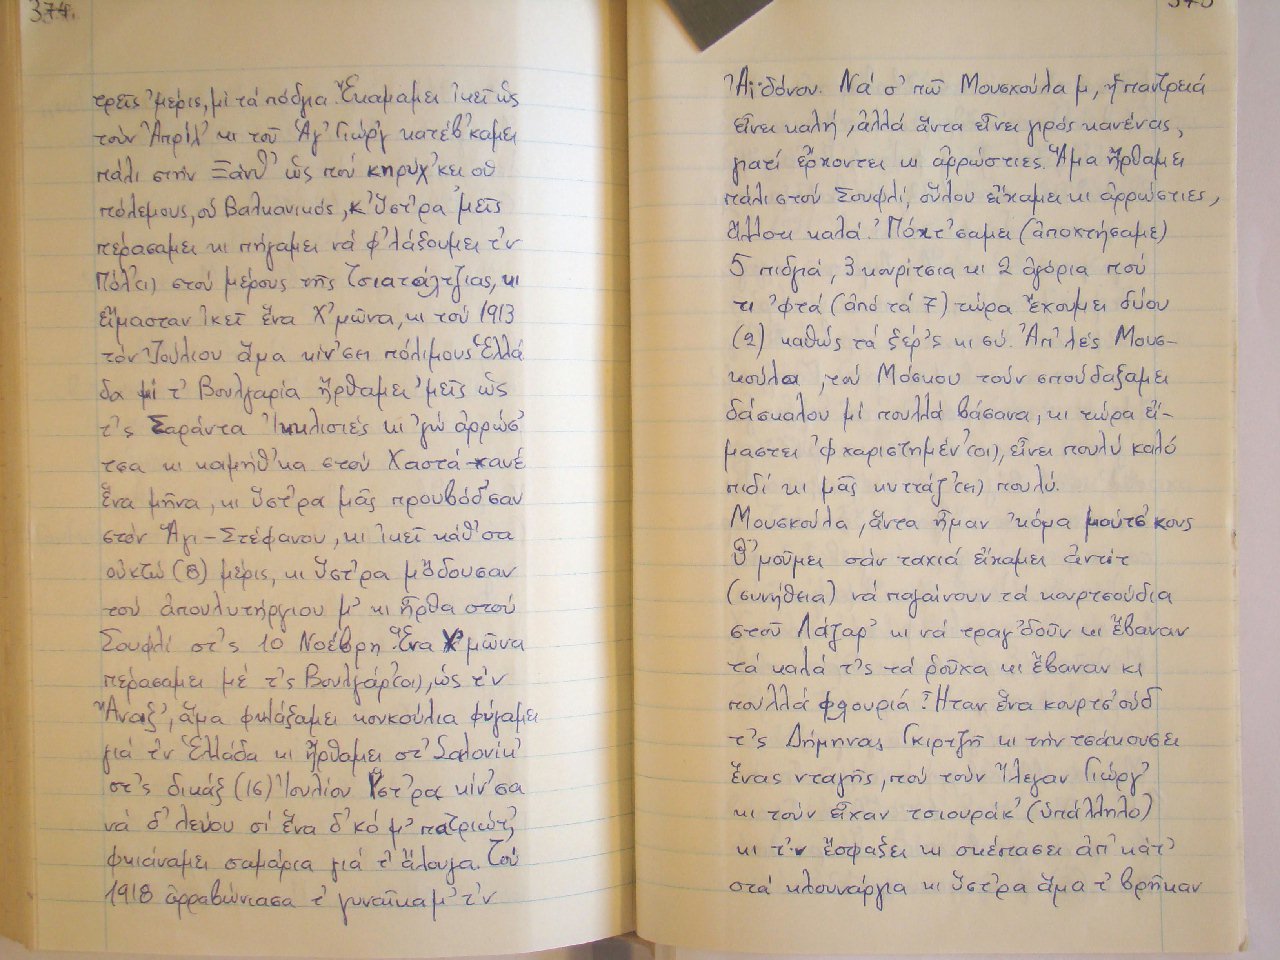 374.
τρεῖς 'μέρις, μὶ τά πόδγια. Ἔκαμαμει 'κεῖ ὥς
τούν Ἀπρίλ' κι τοῦ Ἁγ' Γιώργ' κατέβ'καμει
πάλι στήν Ξάνθ' ὥς πού κηρύχ'κει οὑ
πόλεμους, οὑ Βαλκανικός, κ' ὕστ'ρα 'μεῖς
πέρασαμει κι πήγαμει νά φ'λάξουμει τ'ν
Πόλ'(ι) στού μέρους τῆς Τσιατάλτζιας, κι
εἴμασταν 'κεῖ ἕνα Χ'μῶνα, κι τού 1913
τόν Ἰούλιου ἅμα κίν'σει πόλιμους Ἑλλά
δα μί τ' Βουλγαρία ἤρθαμει 'μεῖς ὥς
τ'ς Σαράντα Ἰκκλισιές κι 'γώ ἀρρώσ'
τσα κι καμήθ'κα στού Χαστά-χανέ
ἕνα μῆνα, κι ὕστ'ρα μᾶς προυβόδ'σαν
στόν Ἅγι-Στέφανου, κι 'κεῖ κάθ'σα
οὐκτώ (8) μέρις, κι ὕστ'ρα μ' ἔδουσαν
τού ἀπουλυτήργιου μ' κι ἦρθα στού
Σουφλί στ'ς 10 Νοέβρη. Ἕνα Χ'μῶνα
πέρασαμει μέ τ'ς Βουλγάρ'(οι), ὡς τ'ν
Ἄνοιξ', ἅμα φκιάξαμει κουκούλια φύγαμει
γιά τ'ν Ἑλλάδα κι ἤρθαμει στ' Σαλονίκ'
στ'ς δικάξ (16) Ἰουλίου. Ὕστ'ρα κίν'σα
νά δ'λεύου σί ἕνα δ'κό μ' πατριώτ',
φκιάναμει σαμάρια γιά τ' ἄλουγα. Τού
1918 ἀρραβώνιασα τ' γυναῖκα μ' τ'ν
375
Ἀηδόνου. Νά σ' πῶ Μουσκούλα μ, ἡ παντρειά
εἶνει καλή, ἀλλά ἄντα εἶνει γιρός κανένας,
γιατί ἔρχοντει κι ἀρρώστιες. Ἅμα ἤρθαμει
πάλι στού Σουφλί, οὕλου εἴχαμει κι ἀρρώστιες,
ἄλλου καλά. Πόχτ'σαμει (ἀποκτήσαμε)
5 πιδγιά, 3 κουρίτσια κι 2 ἀγόρια πού
τι 'φτά (ἀπό τά 7) τώρα ἔχουμει δύου
(2) καθώς τά ξέρ'ς κι σύ. Ἀπ' λές Μουσ-
κούλα, τού Μόσκου τούν σπούδαξαμει
δάσκαλου μί πουλλά βάσανα, κι τώρα εἴ-
μαστει 'φχαριστημέν'(οι), εἶνει πουλύ καλό
πιδί κι μᾶς κυττάζ'(ει) πουλύ.
Μουσκούλα, ἄντα ἤμαν 'κόμα μούτσ'κους
θ'μοῦμει σάν ταχιά εἴχαμει ἀντέτ
(συνήθεια) νά παγαίνουν τά κουρτσούδια
στοῦ Λάζαρ' κι νά τραγ'δοῦν κι ἔβαναν
τά καλά τ'ς τά ροῦχα κι ἔβαναν κι
πουλλά φλουριά. Ἦταν ἕνα κουρτσ'ούδ
τ'ς Δήμηνας Γκιρτζῆ κι τήν τσάκουσει
ἕνας νταγῆς, πού τούν ἔλεγαν Γιώργ'
κι τούν εἶχαν τσιουράκ' (ὑπάλληλο)
κι τ'ν ἔσφαξει κι σκέπασει ἀπ' κάτ'
στά κλουνάργια κι ὕστ'ρα ἅμα τ' βρῆκαν